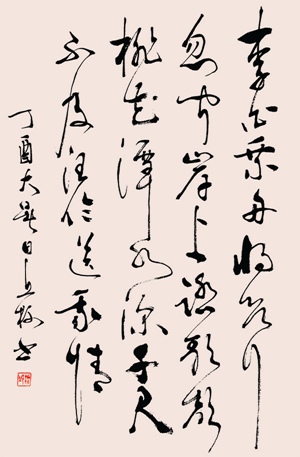 李白乘舟将欲行
忽闻岸上踏歌声
桃花潭水深千尺
不及汪伦送我情
丁酉大暑日立彬书